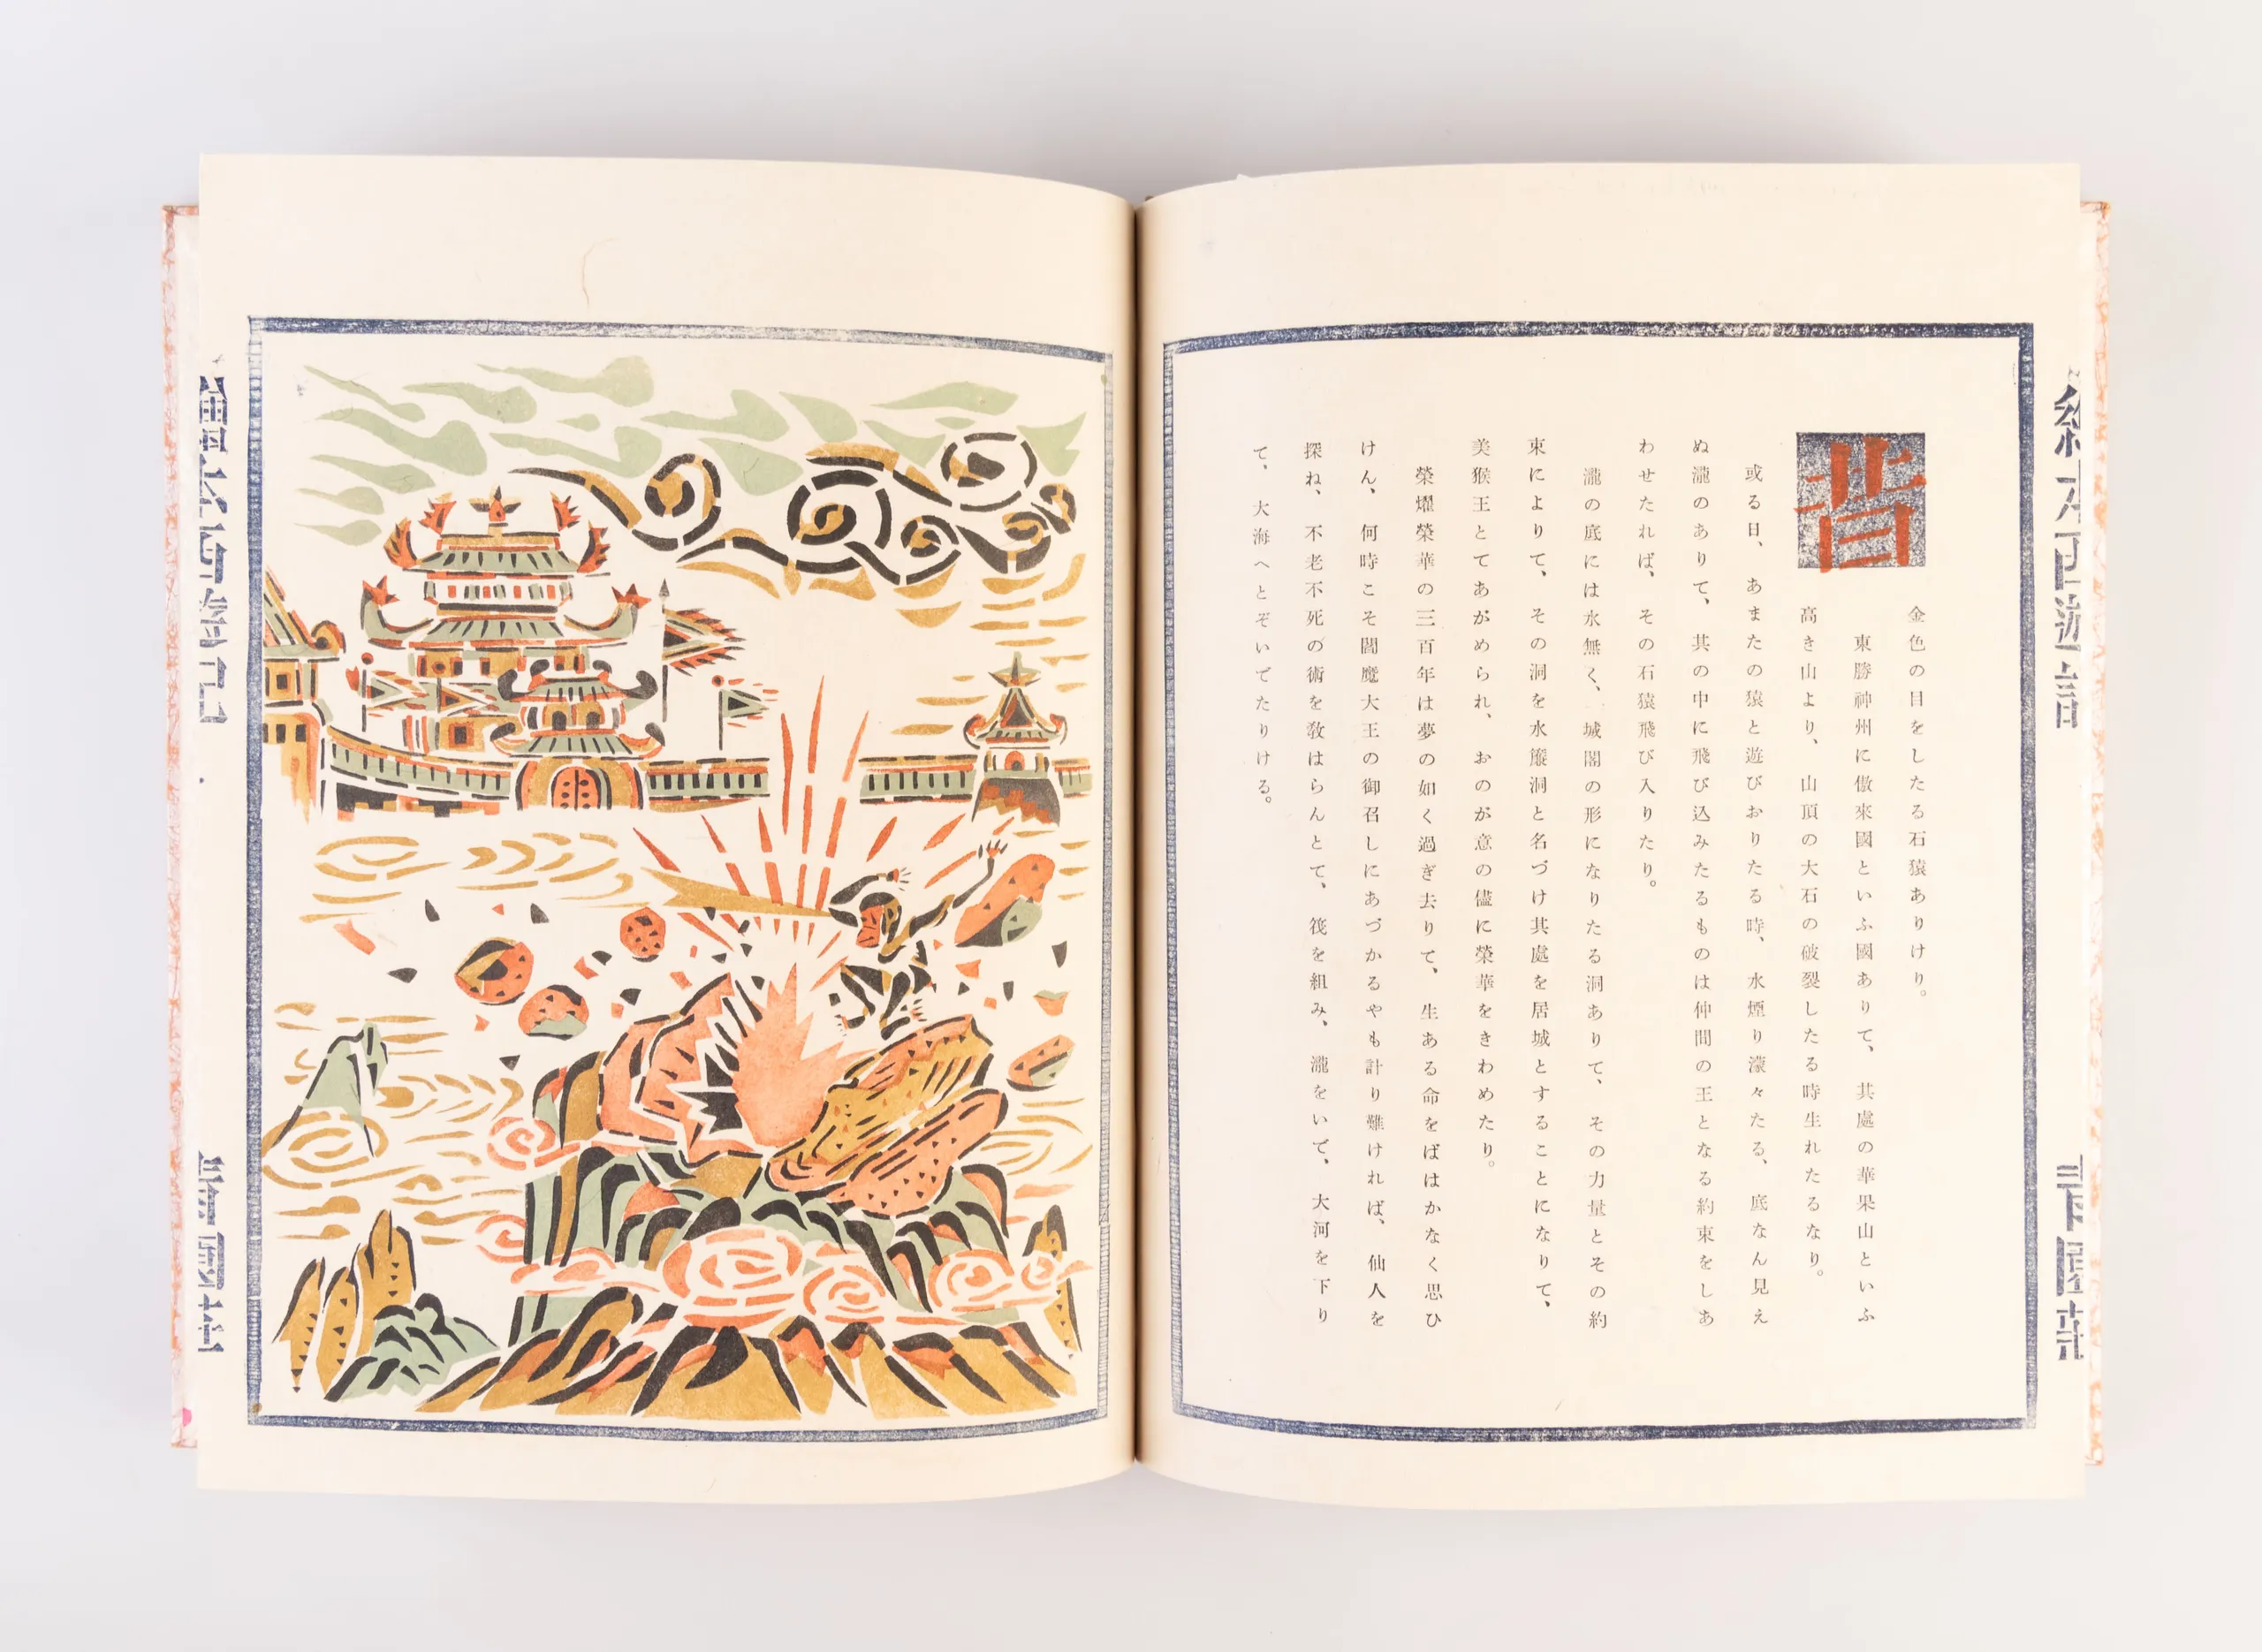 昔
金色の目をしたる石猿ありけり。
東勝神州に傲來國といふ國ありて、其處の華果山といふ
高き山より、山頂の大石の破裂したる時生れたるなり。
或る日、あまたの猿と遊びおりたる時、水煙り濛々たる、底なん見え
ぬ瀧のありて、其の中に飛び込みたるものは仲間の王となる約束をしあ
わせたれば、その石猿飛び入りたり。
瀧の底には水無く、城閣の形になりたる洞ありて、その力量とその約
束によりて、その洞を水簾洞と名づけ其處を居城とすることになりて、
美猴王とてあがめられ、おのが意の儘に榮華をきわめたり。
榮耀榮華の三百年は夢の如く過ぎ去りて、生ある命をばはかなく思ひ
けん、何時こそ閻魔大王の御召しにあづかるやも計り難ければ、仙人を
探ね、不老不死の術を敎はらんとて、筏を組み、瀧をいで、大河を下り
て、大海へとぞいでたりける。